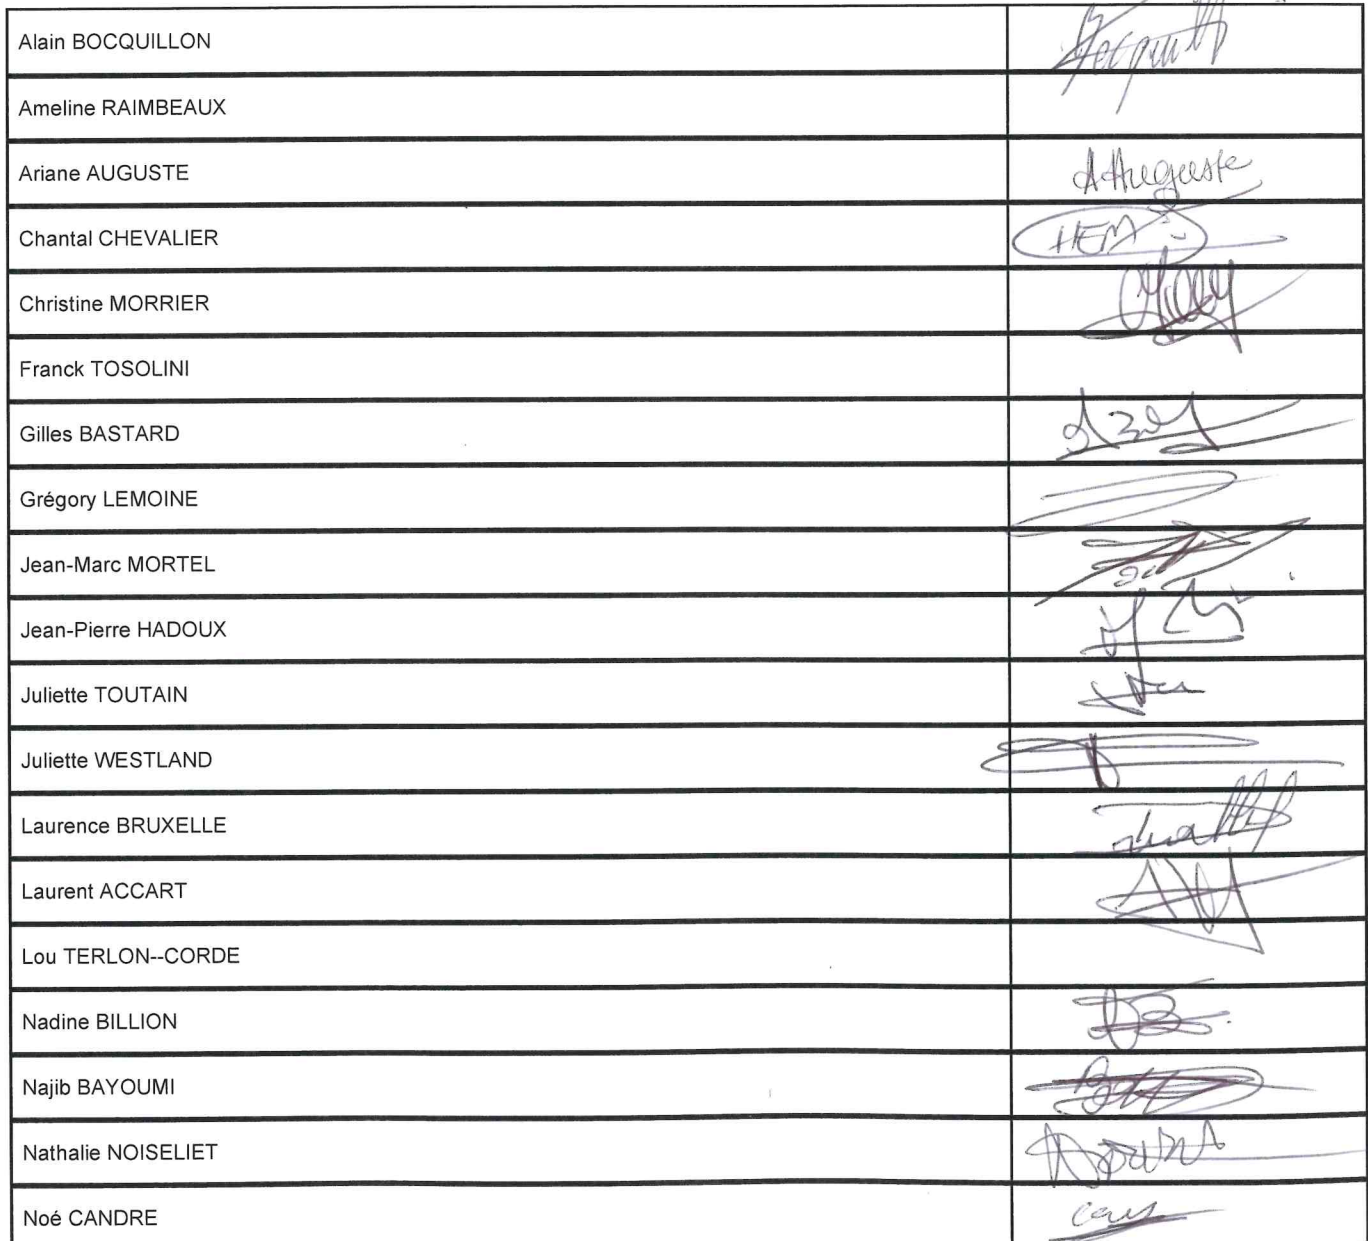 Alain BOCQUILLON
Ameline RAIMBEAUX
Ariane AUGUSTE AAuguste
Chantal CHEVALIER
Christine MORRIER
Franck TOSOLINI
Gilles BASTARD
Grégory LEMOINE
Jean-Marc MORTEL
Jean-Pierre HADOUX
Juliette TOUTAIN
Juliette WESTLAND
Laurence BRUXELLE
Laurent ACCART
Lou TERLON--CORDE
Nadine BILLION
Najib BAYOUMI
Nathalie NOISELIET
Noé CANDRE